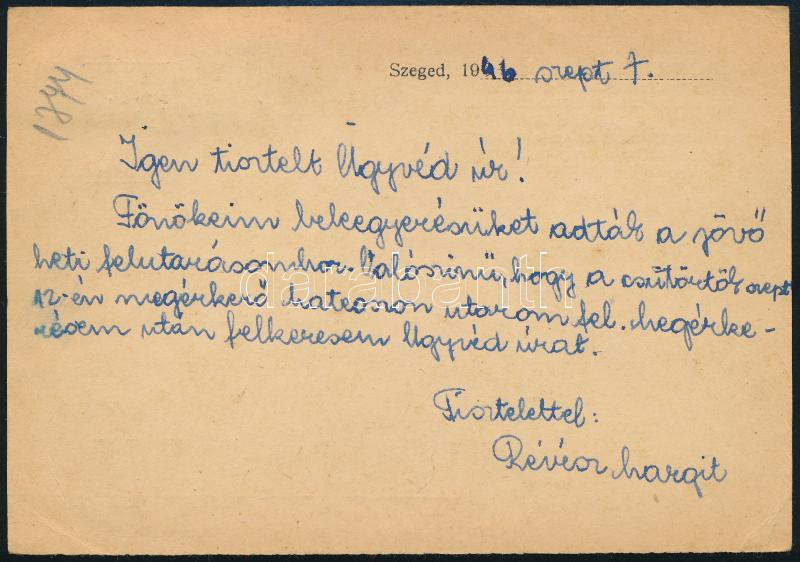 Szeged, 1946 szept 7.
1844
Igen tisztelt Ügyvéd úr!
Főnökeim beleegyezésüket adták a jövő
heti felutazásomhoz. Valószinü, hogy a csütörtök szept
12-én megérkező hateosson utazom fel. Megérke-
zésem után felkeresem Ügyvéd úrat.
Tisztelettel:
Révész Margit
darabanth